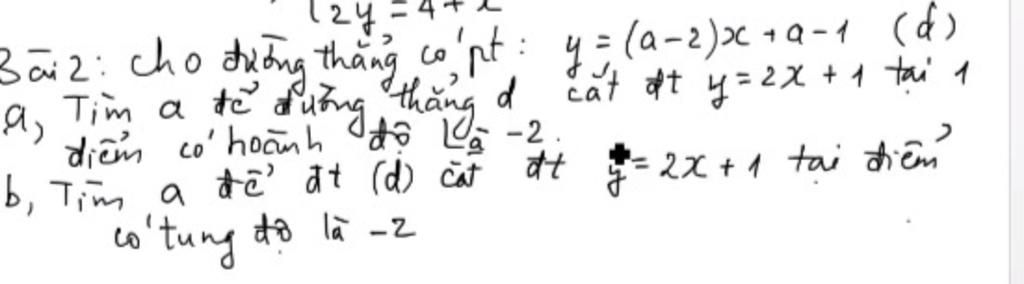 2y = 4 + x
Bài 2: Cho đường thẳng có pt: y = (a-2)x + a - 1 (d)
a, Tìm a để đường thẳng d cắt đt y = 2x + 1 tại 1
điểm có hoành độ là -2.
b, Tìm a để đt (d) cắt đt y = 2x + 1 tại điểm
có tung độ là -2